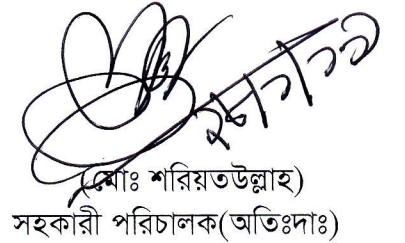 (মোঃ শরিয়তউল্লাহ)
সহকারী পরিচালক(অতিঃদাঃ)